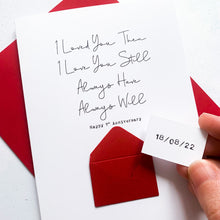 I Loved You Then
I Love You Still
Always Have
Always Will
Happy 1st Anniversary
18/08/22